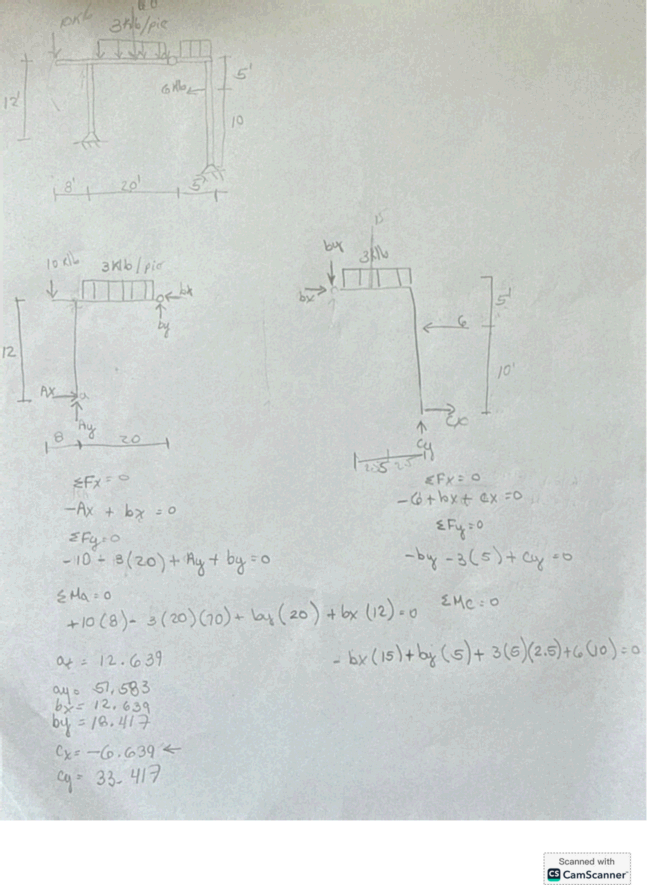 10Klb
3Klb/pie
12'
6Klb
5'
10
8' 20' 5'
10 Klb
3Klb/pie
bx
by
12
Ax
a
Ay
8 20
15
by
3Klb
bx
5'
6
10'
Cx
Cy
2.5 2.5
ΣFx = 0
-Ax + bx = 0
ΣFy=0
-10 - 3(20) + Ay + by = 0
ΣMa = 0
+10(8) - 3(20)(10) + by(20) + bx(12) = 0
ax = 12.639
ay = 51.583
bx = 12.639
by = 18.417
Cx = -6.639 ←
Cy = 33.417
ΣFx = 0
-6 + bx + cx = 0
ΣFy = 0
-by - 3(5) + Cy = 0
ΣMc = 0
-bx(15) + by(5) + 3(5)(2.5) + 6(10) = 0
Scanned with
CS CamScanner